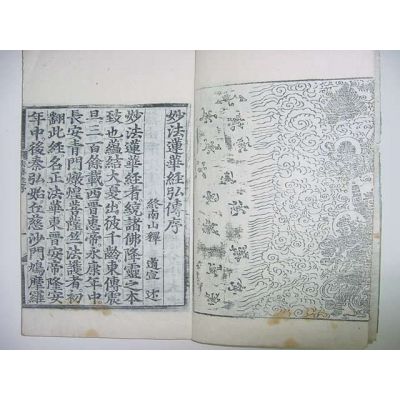 妙法蓮華經弘傳序
終南山釋 道宣 述
妙法蓮華經者統諸佛降靈之本
致也蘊結大夏出彼千齡東傳震
旦三百餘載西晉惠帝永康年中
長安青門燉煌菩薩竺法護者初
翻此經名正法華東晉安帝隆安
年中後秦弘始丘慈沙門鳩摩羅